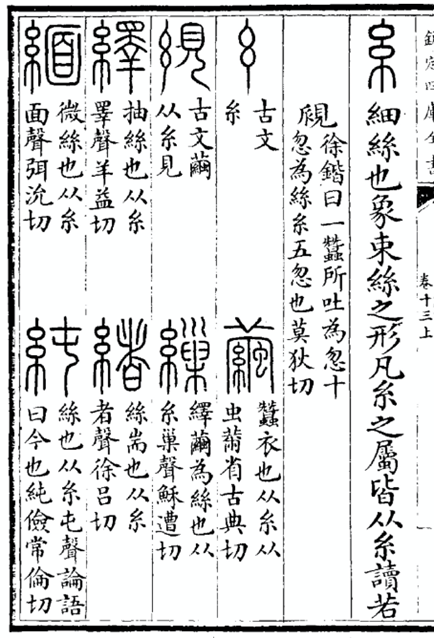 欽定四庫全書
卷十三上
糸 細絲也象束絲之形凡糸之屬皆从糸讀若
覛 徐鍇曰一蠶所吐為忽十
忽為絲糸五忽也莫狄切
古文
糸
繭 蠶衣也从糸从
虫黹省古典切
絸 古文繭
从糸見
繅 繹繭為絲也从
糸巢聲穌遭切
繹 抽絲也从糸
睪聲羊益切
緒 絲耑也从糸
者聲徐呂切
緬 微絲也从糸
面聲弭沇切
純 絲也从糸屯聲論語
曰今也純儉常倫切